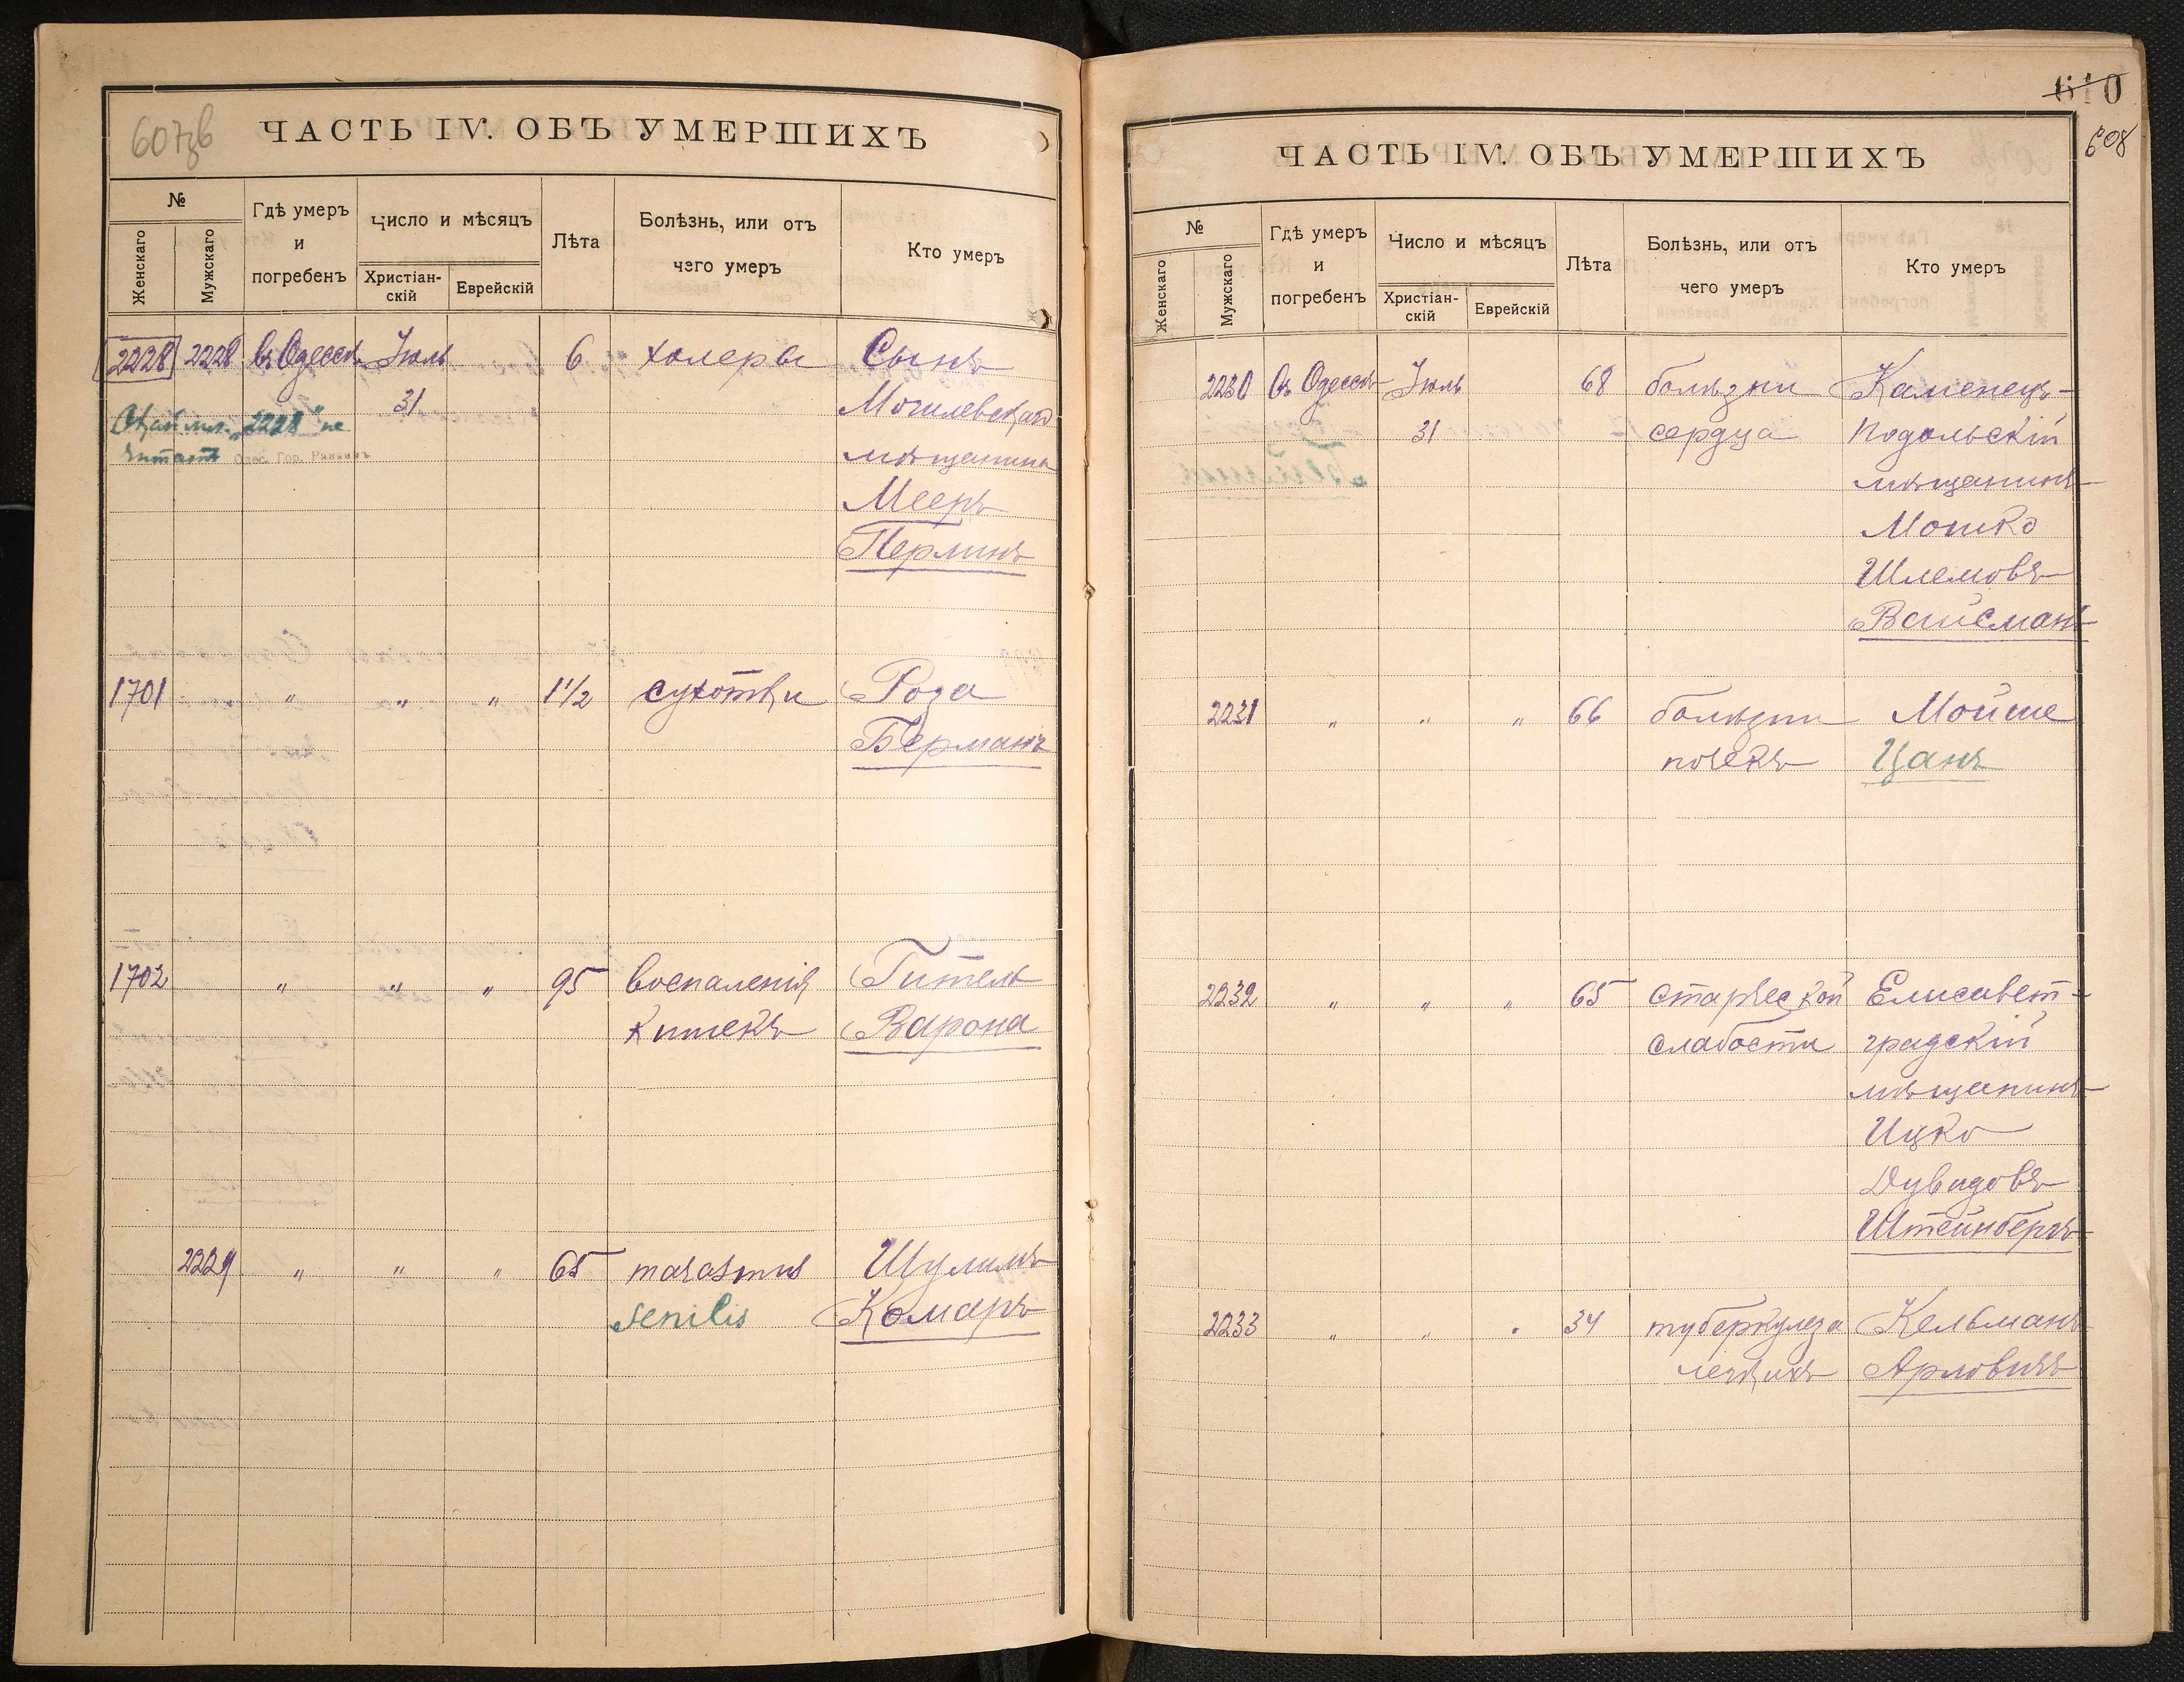 607об
ЧАСТЬ IV. ОБЪ УМЕРШИХЪ
№
Женскаго
Мужскаго
Гдѣ умеръ
и
погребенъ
Число и мѣсяцъ
Христіан-
скій
Еврейскій
Лѣта
Болѣзнь, или отъ
чего умеръ
Кто умеръ
2228 2228 въ Одессѣ Іюль 6 холеры Сынъ
31 Могилевскаго
"2228" не
читать Одес. Гор. Раввинъ мѣщанина
Мееръ
Перлинъ
1701 " " " 1 1/2 сухотки Роза
Берманъ
1702 " " " 95 воспаленія Гитель
кишекъ Варона
2229 " " " 65 marasmus Шулимъ
senilis Комаръ
610
608
ЧАСТЬ IV. ОБЪ УМЕРШИХЪ
№
Женскаго
Мужскаго
Гдѣ умеръ
и
погребенъ
Число и мѣсяцъ
Христіан-
скій
Еврейскій
Лѣта
Болѣзнь, или отъ
чего умеръ
Кто умеръ
2230 Въ Одессѣ Іюль 68 болѣзни Каменецъ-
31 сердца Подольскій
мѣщанинъ
Мошко
Шлемовъ
Вайсманъ
2231 " " " 66 болѣзни Мойше
почекъ Цанъ
2232 " " " 65 старческой Елисавет-
слабости градскій
мѣщанинъ
Ицко
Дувидовъ
Штейнбергъ
2233 " " " 34 туберкулеза Кельманъ
легкихъ Арловичъ